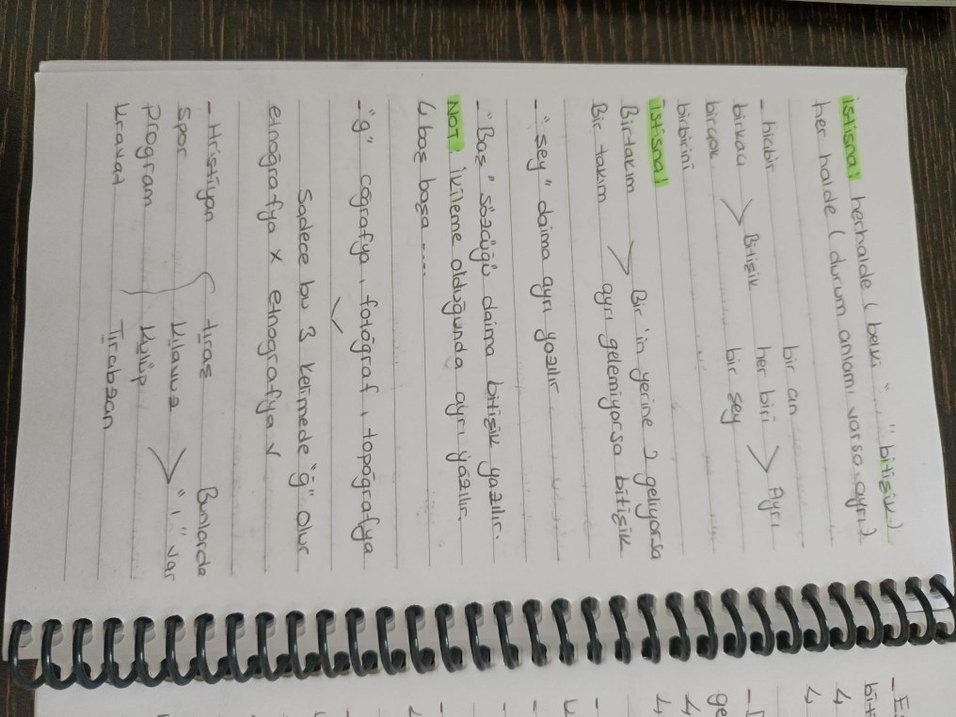 istisna! herhalde ( belki " " bitişik)
her halde ( durum anlamı varsa ayrı)
- hiçbir bir an
birkaçı > Bitişik her biri > Ayrı
birçok bir şey
birbirini
istisna!
Birtakım > Bir'in yerine 2 geliyorsa
Bir takım ayrı gelemiyorsa bitişik
- "şey" daima ayrı yazılır.
- "Baş" sözcüğü daima bitişik yazılır.
NOT: İkileme olduğunda ayrı yazılır.
↳ baş başa .....
- "ğ" coğrafya, fotoğraf, topoğrafya
Sadece bu 3 kelimede "ğ" olur
etnoğrafya x etnografya ✓
- Hristiyan tıraş Bunlarda
spor kılavuz > "ı" var
program kulüp
kravat Tırabzan